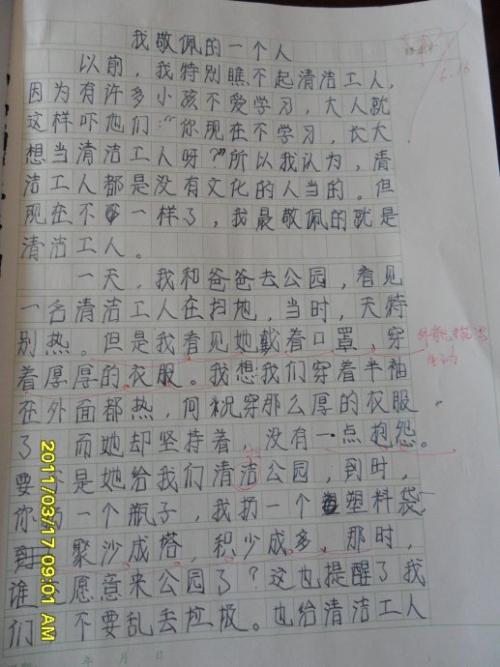 我敬佩的一个人
以前，我特别瞧不起清洁工人，
因为有许多小孩不爱学习，大人就
这样吓他们：“你现在不学习，长大
想当清洁工人呀？”所以我认为，清
洁工人都是没有文化的人当的。但
现在不一样了，我最敬佩的就是
清洁工人。
一天，我和爸爸去公园，看见
一名清洁工人在扫地，当时，天特
别热。但是我看见她戴着口罩，穿
着厚厚的衣服。我想我们穿着半袖
在外面都热，何况穿那么厚的衣服
了 而她却坚持着，没有一点抱怨。
要不是她给我们清洁公园，到时，
你扔一个瓶子，我扔一个塑料袋，
聚沙成塔，积少成多，那时，
谁还愿意来公园了？这也提醒了我
们 不要乱丢垃圾。也给清洁工人
年 月 日
6.16
2011/03/17 09:01 AM